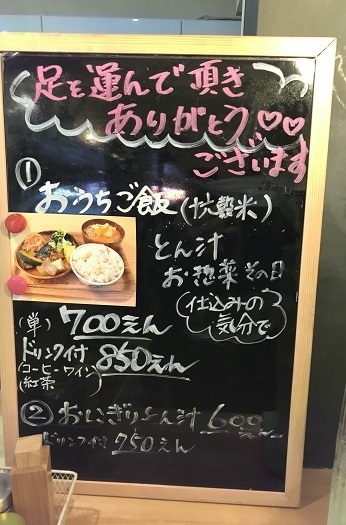 足を運んで頂き
ありがとう♡♡
ございます
①
おうちご飯(雑穀米)
とん汁
お惣菜その日
仕込みの
気分で
(単) 700えん
ドリンク付 850えん
(コーヒー・ワイン)
(紅茶
② おにぎりとん汁 600えん
ドリンク付 750えん